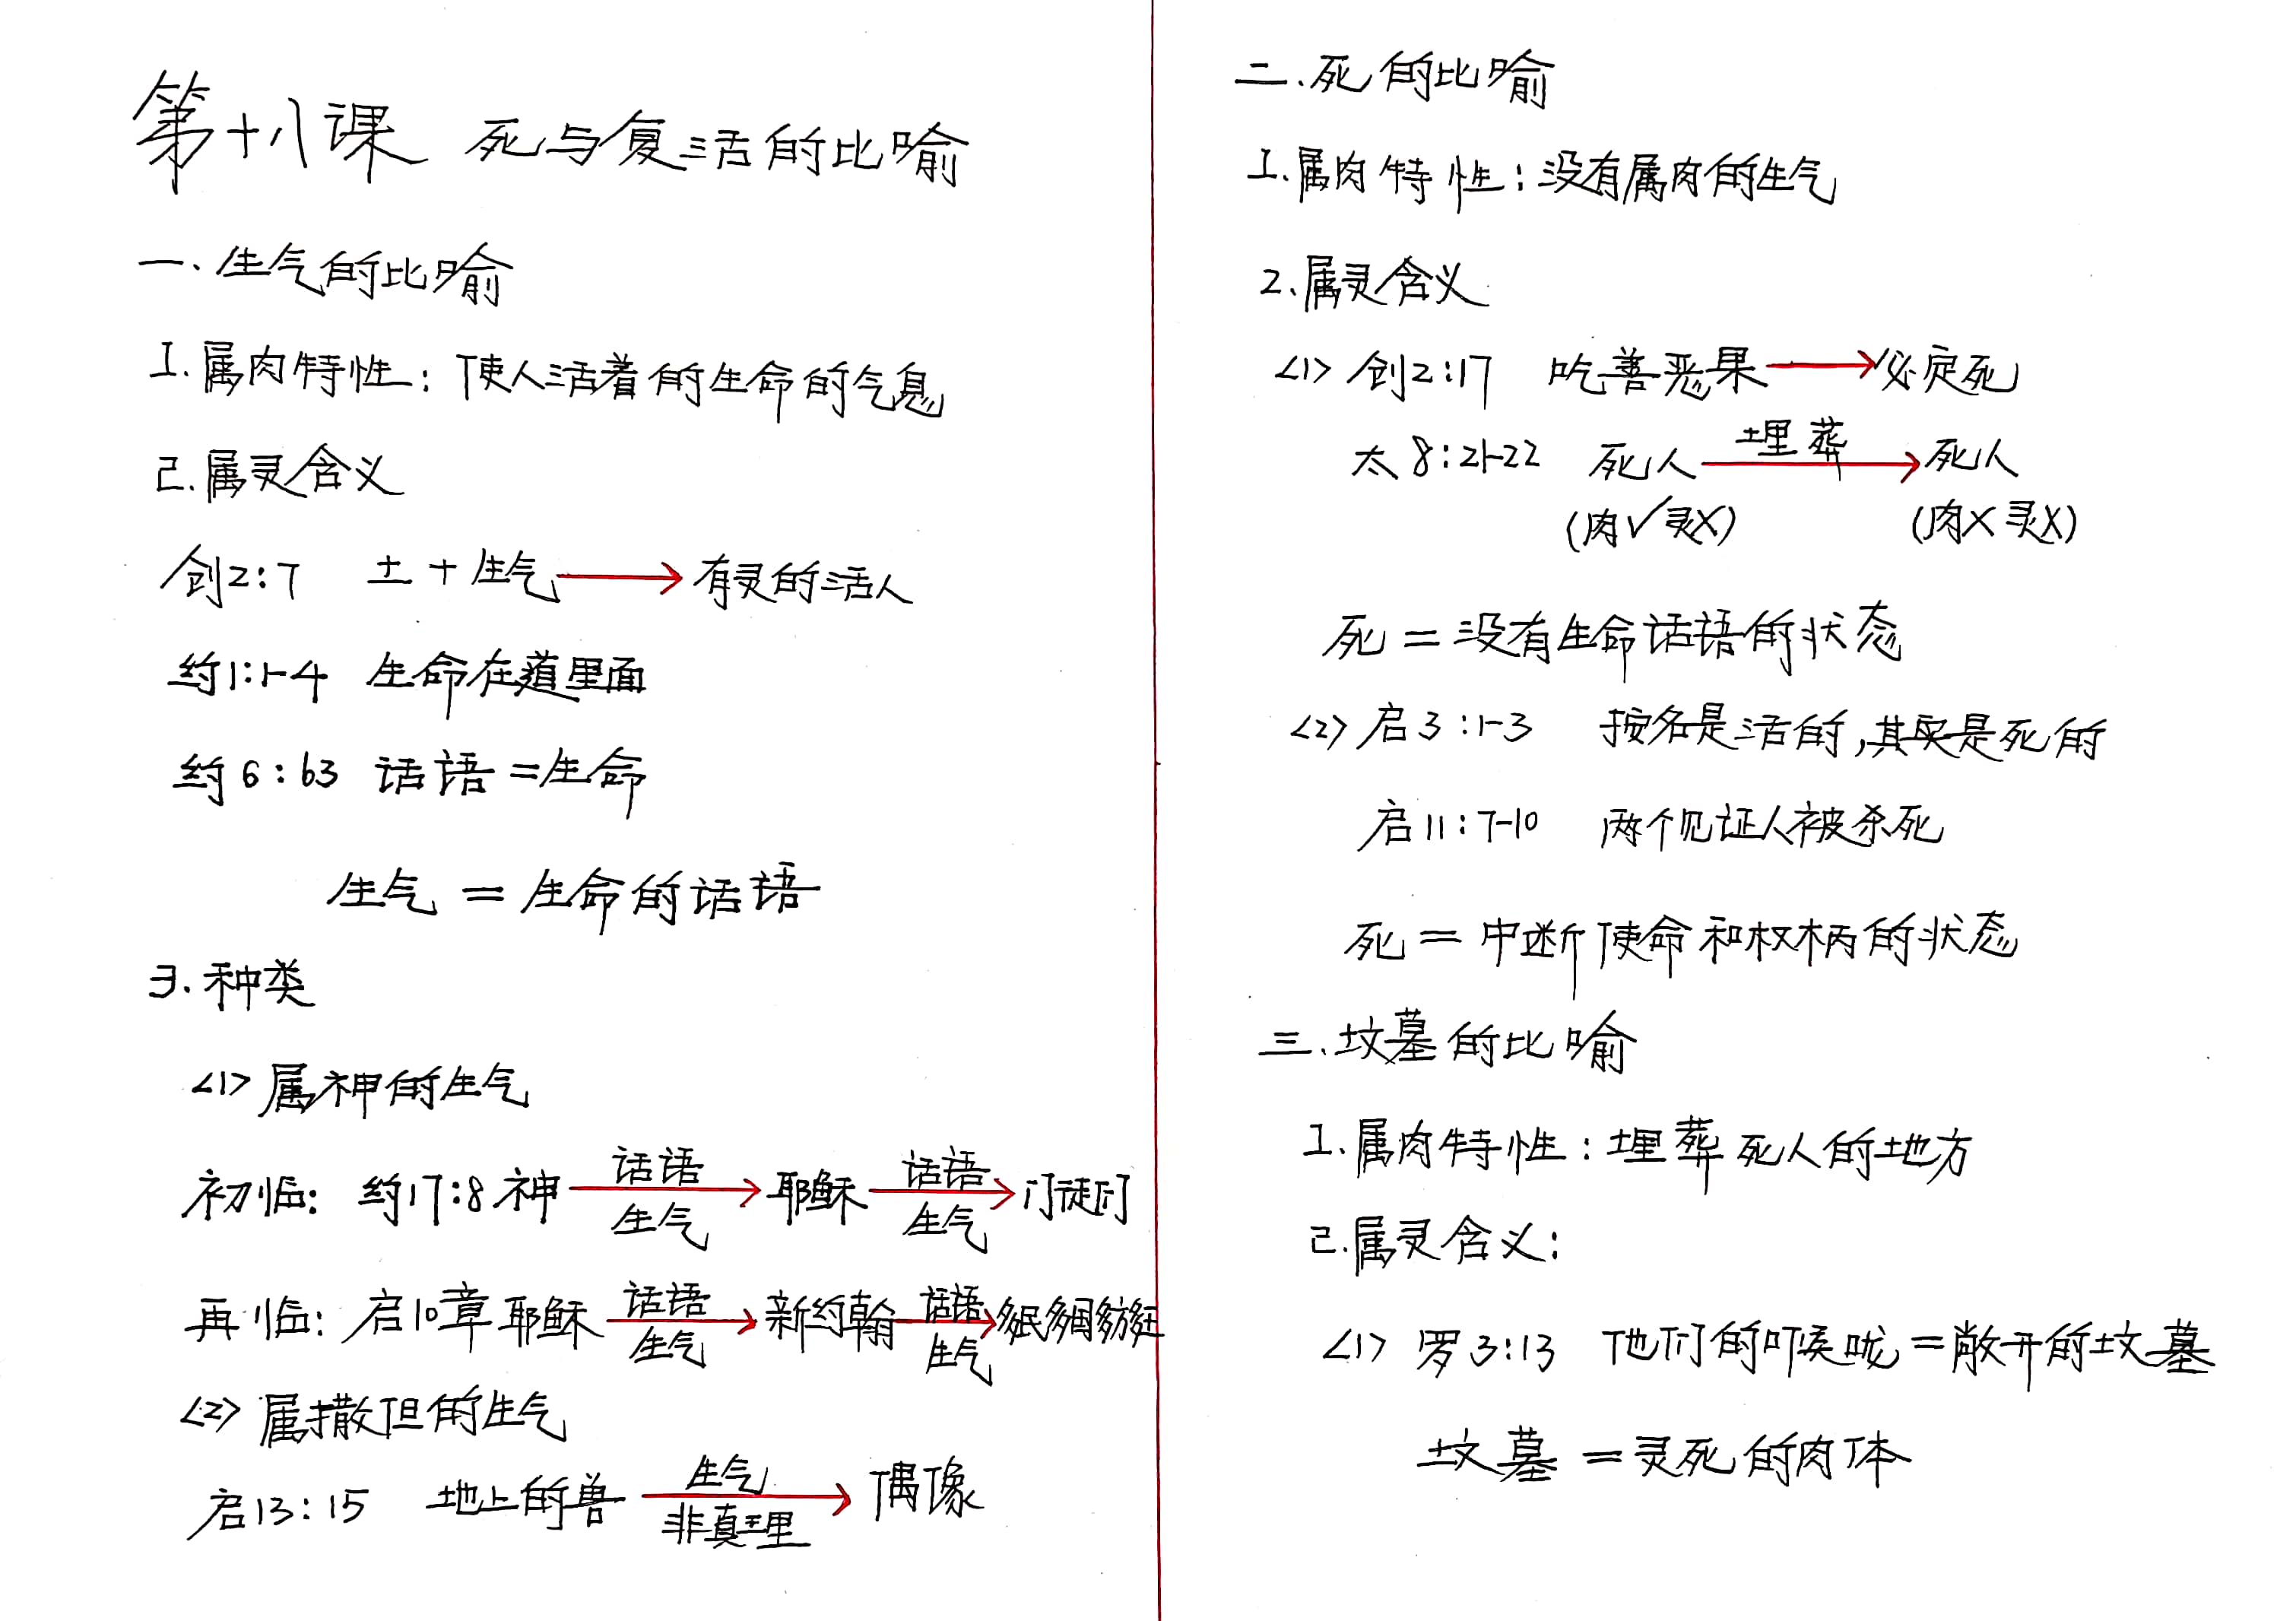 第十八课 死与复活的比喻
一、生气的比喻
1.属肉特性：使人活着的生命的气息
2.属灵含义
创2:7 土+生气→有灵的活人
约1:1-4 生命在道里面
约6:63 话语=生命
生气=生命的话语
3.种类
<1>属神的生气
话语 话语
初临：约17:8神→耶稣→门徒们
生气 生气
话语 话语
再临：启10章耶稣→新约翰→多民多国多方多王
生气 生气
<2>属撒但的生气
生气
启13:15 地上的兽→偶像
非真理
二.死的比喻
1.属肉特性：没有属肉的生气
2.属灵含义
<1>创2:17 吃善恶果→必定死
埋葬
太8:21-22 死人→死人
(肉✓灵X) (肉X灵X)
死=没有生命话语的状态
<2>启3:1-3 按名是活的,其实是死的
启11:7-10 两个见证人被杀死
死=中断使命和权柄的状态
三.坟墓的比喻
1.属肉特性：埋葬死人的地方
2.属灵含义：
<1>罗3:13 他们的喉咙=敞开的坟墓
坟墓=灵死的肉体